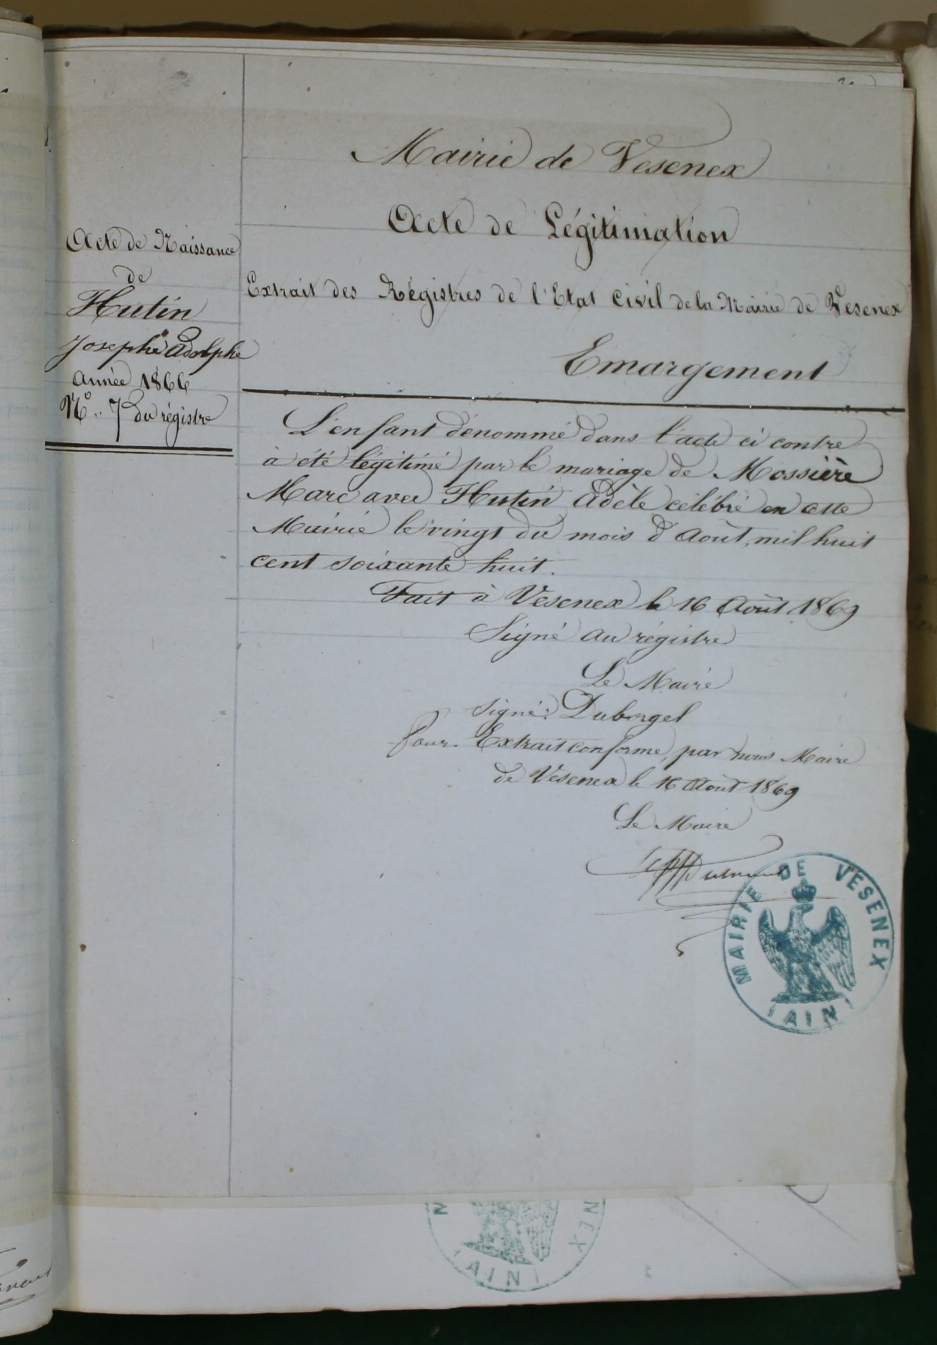 Mairie de Vesenex
Acte de Légitimation
Extrait des Régistres de l'Etat Civil de la Mairie de Vesenex
Emargement
Acte de Naissance
de
Hutin
Josephe Adolphe
année 1866
N° 7 du régistre
L'enfant dénommé dans l'acte ci contre
à été légitimé par le mariage de Mossière
Marc avec Hutin Adèle célébré en cette
Mairie le vingt du mois d'Août, mil huit
cent soixante huit.
Fait à Vesenex le 16 Août 1869
Signé au régistre
Le Maire
Signé: Duborgel
Pour Extrait conforme, par nous Maire
de Vesenex le 16 Aout 1869
Le Maire
MAIRIE DE VESENEX
(AIN)
NEX
(AIN)